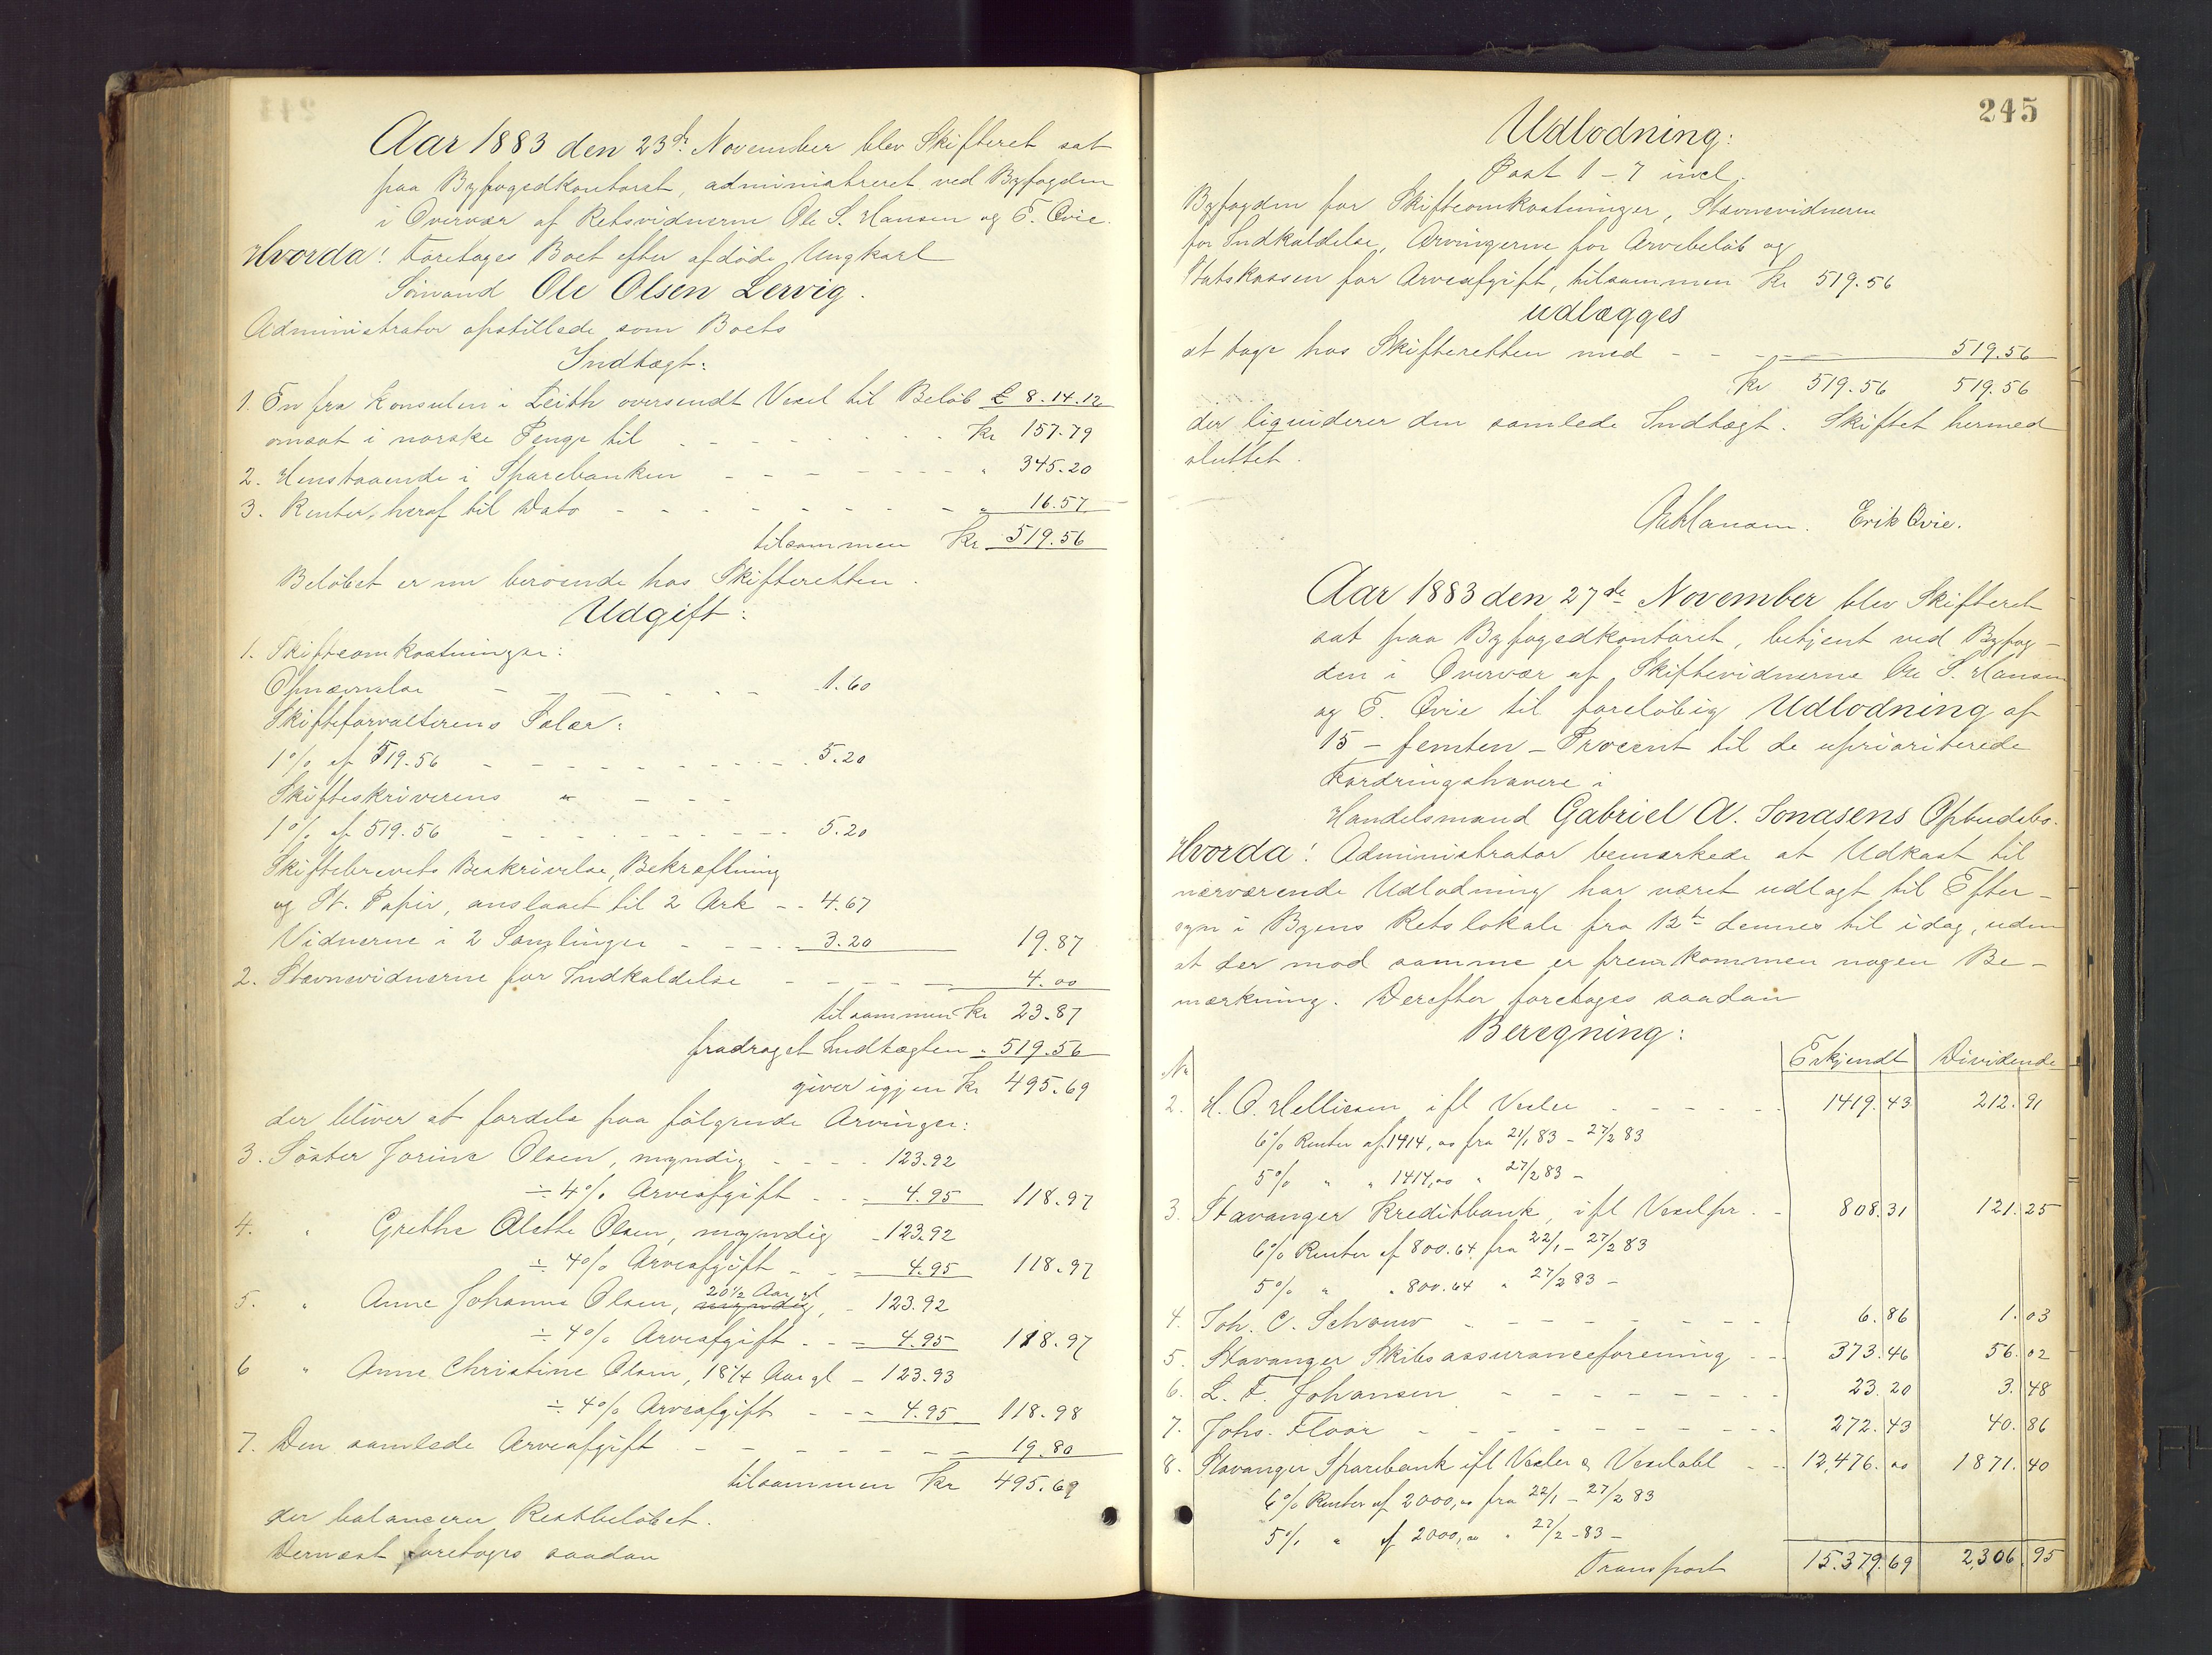 Aar 1883 den 23de November blev Skifteret sat
paa Byfogedkontoret, administreret ved Byfogden
i Overvær af Retsvidnerne Ole S. Hansen og E. Qvie.
Hvorda! Foretoges Boet efter afdøde Ungkarl
Sømand Ole Olsen Lervig.
Administrator opstillede som Boets
Indtægt:
1. En fra Konsulen i Leith oversendt Vexel til Beløb £ 8.14.12
omsat i norske Penge til - - - Kr 157.79
2. Henstaaende i Sparebanken - - - " 345.20
3. Renter heraf til Dato - - - " 16.57
tilsammen Kr 519.56
Beløbet er nu beroende hos Skifteretten.
Udgift:
1. Skifteomkostninger:
Opnævnelse - - - 1.60
Skifteforvalterens Salær:
1% af 519.56 - - - 5.20
Skifteskriverens " - - -
1% af 519.56 - - - 5.20
Skiftebrevets Beskrivelse, Bekræftning
og St. Papir, anslaaet til 2 Ark - - 4.67
Vidnerne i 2 Samlinger - - - 3.20 19.87
2. Stævnevidnerne for Indkaldelse - - - 4.00
tilsammen Kr 23.87
fradraget Indtægten " 519.56
giver igjen Kr 495.69
der bliver at fordele paa følgende Arvinger:
3. Søster Jorine Olsen, myndig - - - 123.92
÷ 4% Arveafgift - - - 4.95 118.97
4. " Grethe Alethe Olsen, myndig - 123.92
÷ 4% Arveafgift - - - 4.95 118.97
5. " Anne Johanne Olsen, myndig, 20 1/2 Aar gl - 123.92
÷ 4% Arveafgift - - - 4.95 118.97
6 " Anne Christine Olsen, 18 1/4 Aar gl - 123.93
÷ 4% Arveafgift - - - 4.95 118.98
7. Den samlede Arveafgift - - - 19.80
tilsammen Kr 495.69
der balancerer Restbeløbet.
Dernæst foretoges saadan
245
Udlodning:
Post 1 - 7 incl.
Byfogden for Skifteomkostninger, Stævnevidnerne
for Indkaldelse, Arvingerne for Arvebeløb og
Statskassen for Arveafgift, tilsammen Kr 519.56
udlægges
at tage hos Skifteretten med - - - 519.56
Kr 519.56 519.56
der liquiderer den samlede Indtægt. Skiftet hermed
sluttet.
Erik Qvie.
Aar 1883 den 27de November blev Skifteret
sat paa Byfogedkontoret, betjent ved Byfog-
den i Overvær af Skiftevidnerne Ole S. Hansen
og E. Qvie til foreløbig Udlodning af
15 - femten - Procent til de uprioriterede
Fordringshavere i
Handelsmand Gabriel A. Jonasens Opbudsbo.
Hvorda! Administrator bemærkede at Udkast til
nærværende Udlodning har været udlagt til Efter-
syn i Byens Retslokale fra 12te dennes til idag, uden
at der mod samme er fremkommen nogen Be-
mærkning. Derefter foretoges saadan
Beregning:
No Erkjendt Dividende
2. H. O. Hellisen ifl Vexler - - - 1419.43 212.91
6% Renter af 1414,00 fra 21/1 83 - 27/2 83
5% " " 1414,00 " 27/2 83 -
3. Stavanger Kreditbank, ifl Vexelpr. - 808.31 121.25
6% Renter af 800.64 fra 22/1 - 27/2 83
5% " " 800.64 " 27/2 83 -
4. Joh. C. Schouw - - - 6.86 1.03
5. Stavanger Skibsassuranceforening - - 373.46 56.02
6. L. F. Johansen - - - 23.20 3.48
7. Johs. Floor - - - 272.43 40.86
8. Stavanger Sparebank ifl Vexler & Vexelobl - - 12,476.00 1871.40
6% Renter af 2000,00 fra 22/1 - 27/2 83
5% " af 2000,00 " 27/2 - 83 -
Transport 15.379.69 2,306.95